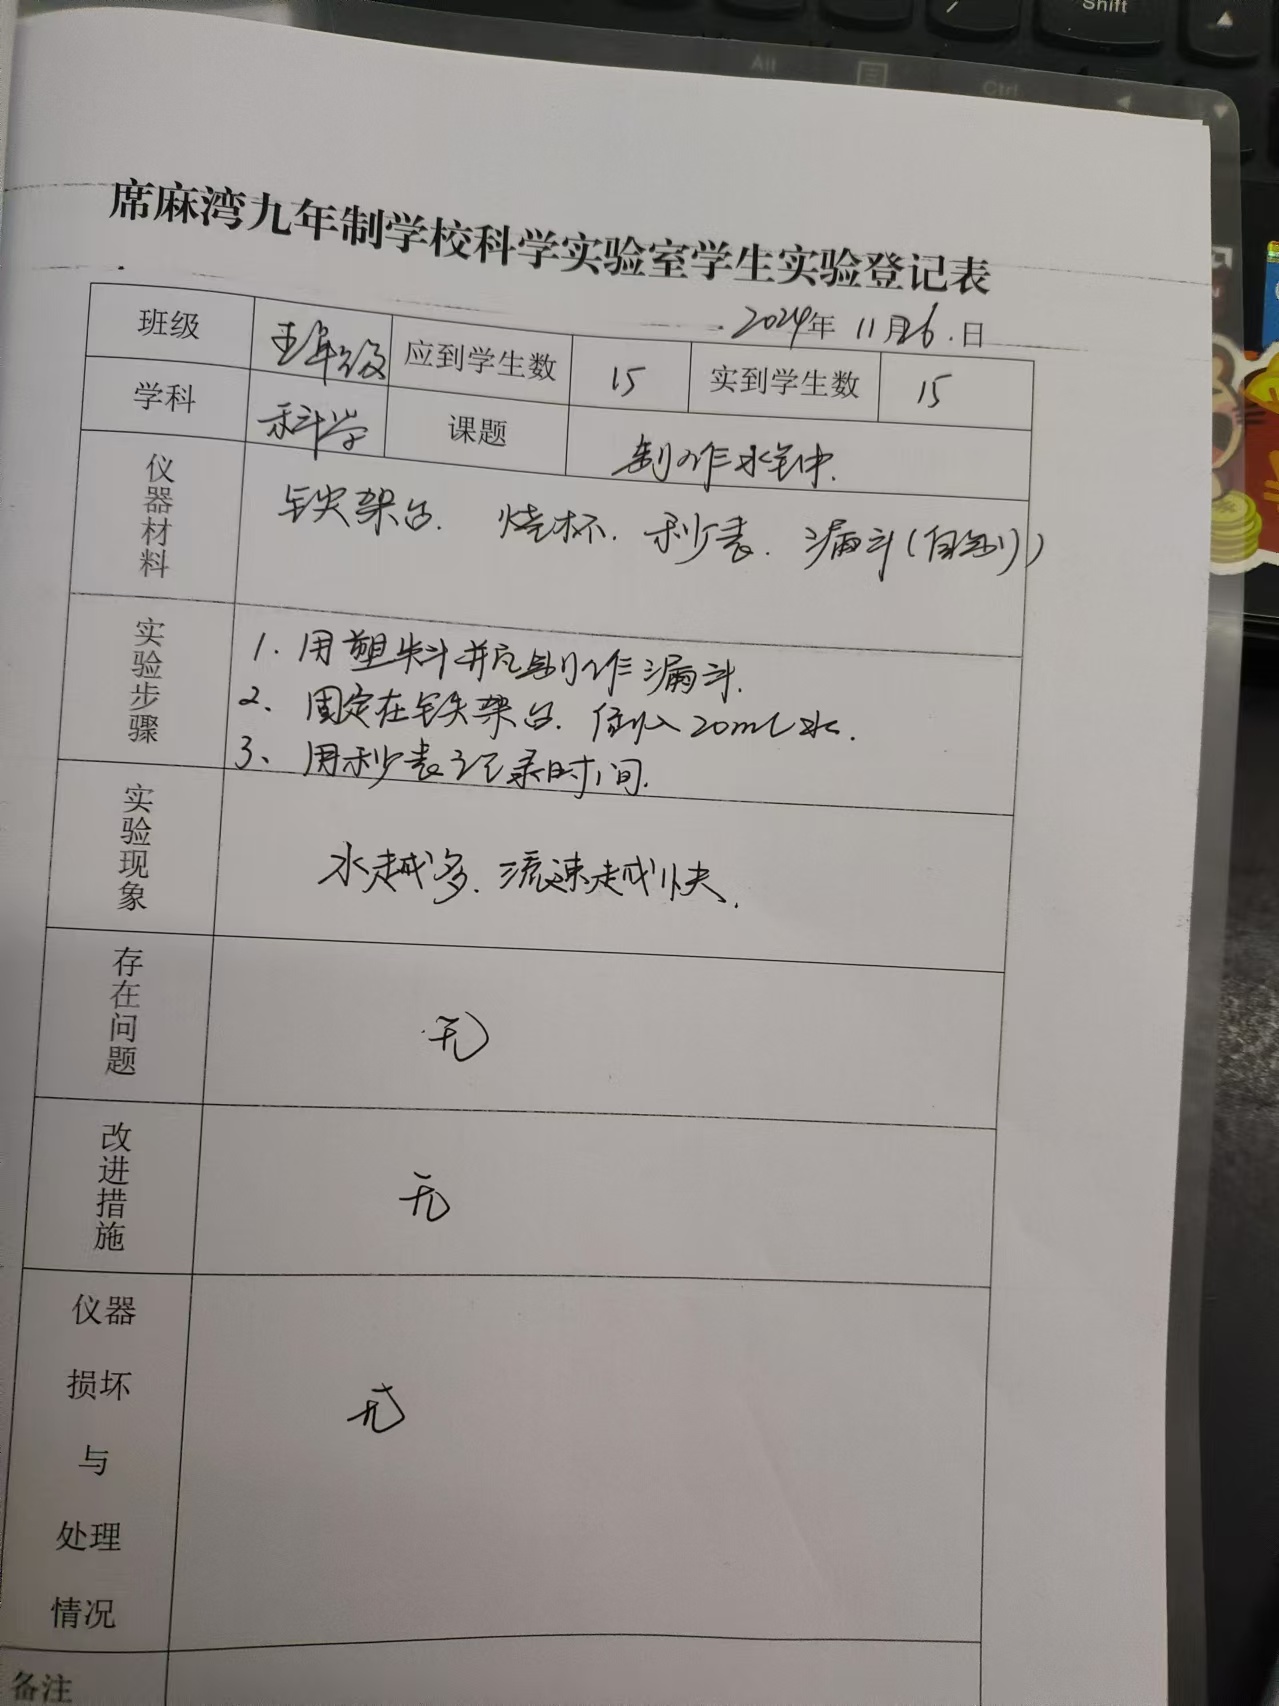 Shift
Alt
Ctrl
席麻湾九年制学校科学实验室学生实验登记表
2024年 11月26.日
班级 五年级 应到学生数 15 实到学生数 15
学科 科学 课题 制作水钟.
仪器材料 铁架台. 烧杯. 秒表. 漏斗(自制)
实验步骤
1. 用塑料瓶制作漏斗.
2、固定在铁架台. 倒入20mL水.
3、用秒表记录时间.
实验现象 水越多. 流速越快.
存在问题 无
改进措施 无
仪器
损坏
与
处理
情况
无
备注